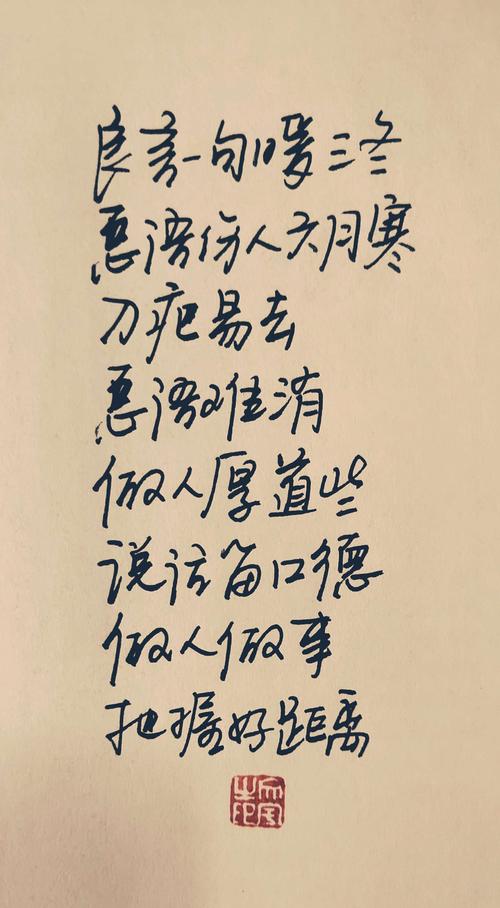 良言一句暖三冬
恶语伤人六月寒
刀疤易去
恶语难消
做人厚道些
说话留口德
做人做事
把握好距离